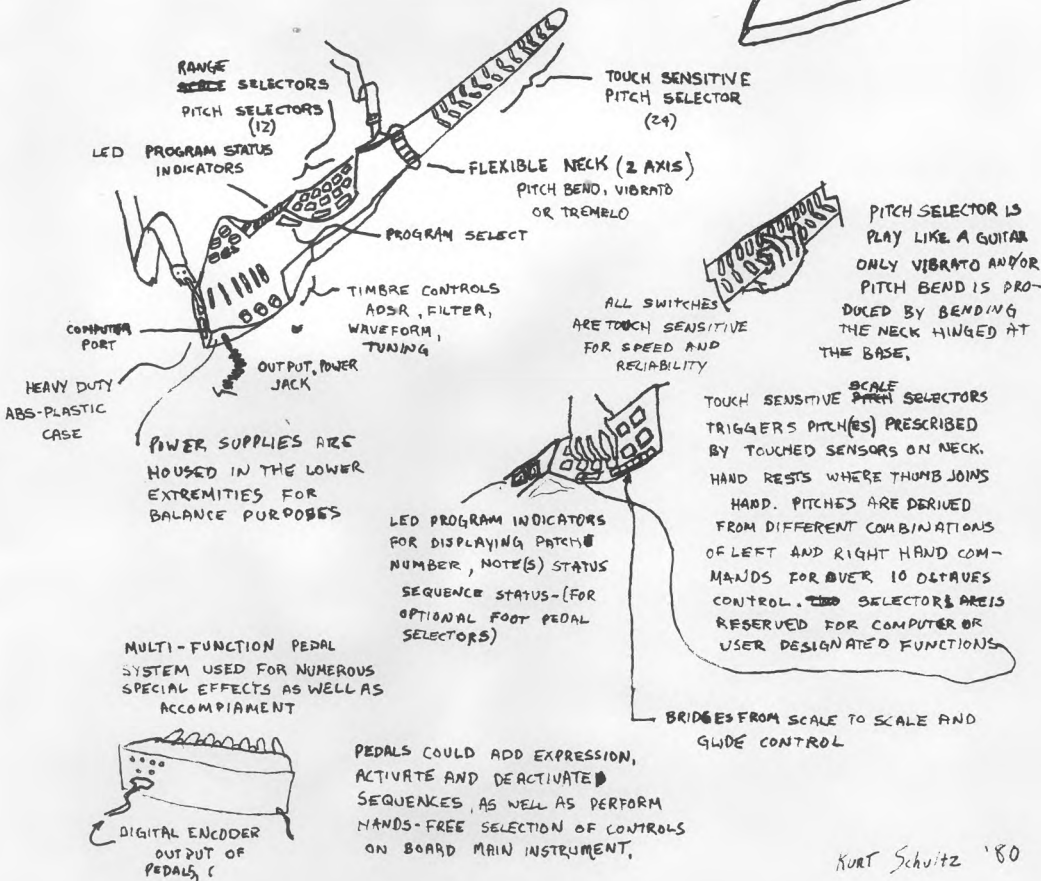 RANGE
SELECTORS
PITCH SELECTORS
(12)
LED PROGRAM STATUS
INDICATORS
TOUCH SENSITIVE
PITCH SELECTOR
(24)
FLEXIBLE NECK (2 AXIS)
PITCH BEND, VIBRATO
OR TREMELO
PROGRAM SELECT
TIMBRE CONTROLS
ADSR, FILTER,
WAVEFORM,
TUNING
COMPUTER
PORT
OUTPUT, POWER
JACK
HEAVY DUTY
ABS-PLASTIC
CASE
POWER SUPPLIES ARE
HOUSED IN THE LOWER
EXTREMITIES FOR
BALANCE PURPOSES
ALL SWITCHES
ARE TOUCH SENSITIVE
FOR SPEED AND
RELIABILITY
PITCH SELECTOR IS
PLAY LIKE A GUITAR
ONLY VIBRATO AND/OR
PITCH BEND IS PRO-
DUCED BY BENDING
THE NECK HINGED AT
THE BASE.
TOUCH SENSITIVE SCALE SELECTORS
TRIGGERS PITCH(ES) PRESCRIBED
BY TOUCHED SENSORS ON NECK.
HAND RESTS WHERE THUMB JOINS
HAND. PITCHES ARE DERIVED
FROM DIFFERENT COMBINATIONS
OF LEFT AND RIGHT HAND COM-
MANDS FOR OVER 10 OCTAVES
CONTROL. SELECTORS IS
RESERVED FOR COMPUTER OR
USER DESIGNATED FUNCTIONS
LED PROGRAM INDICATORS
FOR DISPLAYING PATCH
NUMBER, NOTE(S) STATUS
SEQUENCE STATUS-(FOR
OPTIONAL FOOT PEDAL
SELECTORS)
BRIDGES FROM SCALE TO SCALE AND
GLIDE CONTROL
MULTI-FUNCTION PEDAL
SYSTEM USED FOR NUMEROUS
SPECIAL EFFECTS AS WELL AS
ACCOMPIAMENT
DIGITAL ENCODER
OUTPUT OF
PEDALS
PEDALS COULD ADD EXPRESSION,
ACTIVATE AND DEACTIVATE
SEQUENCES, AS WELL AS PERFORM
HANDS-FREE SELECTION OF CONTROLS
ON BOARD MAIN INSTRUMENT.
KURT Schuitz '80